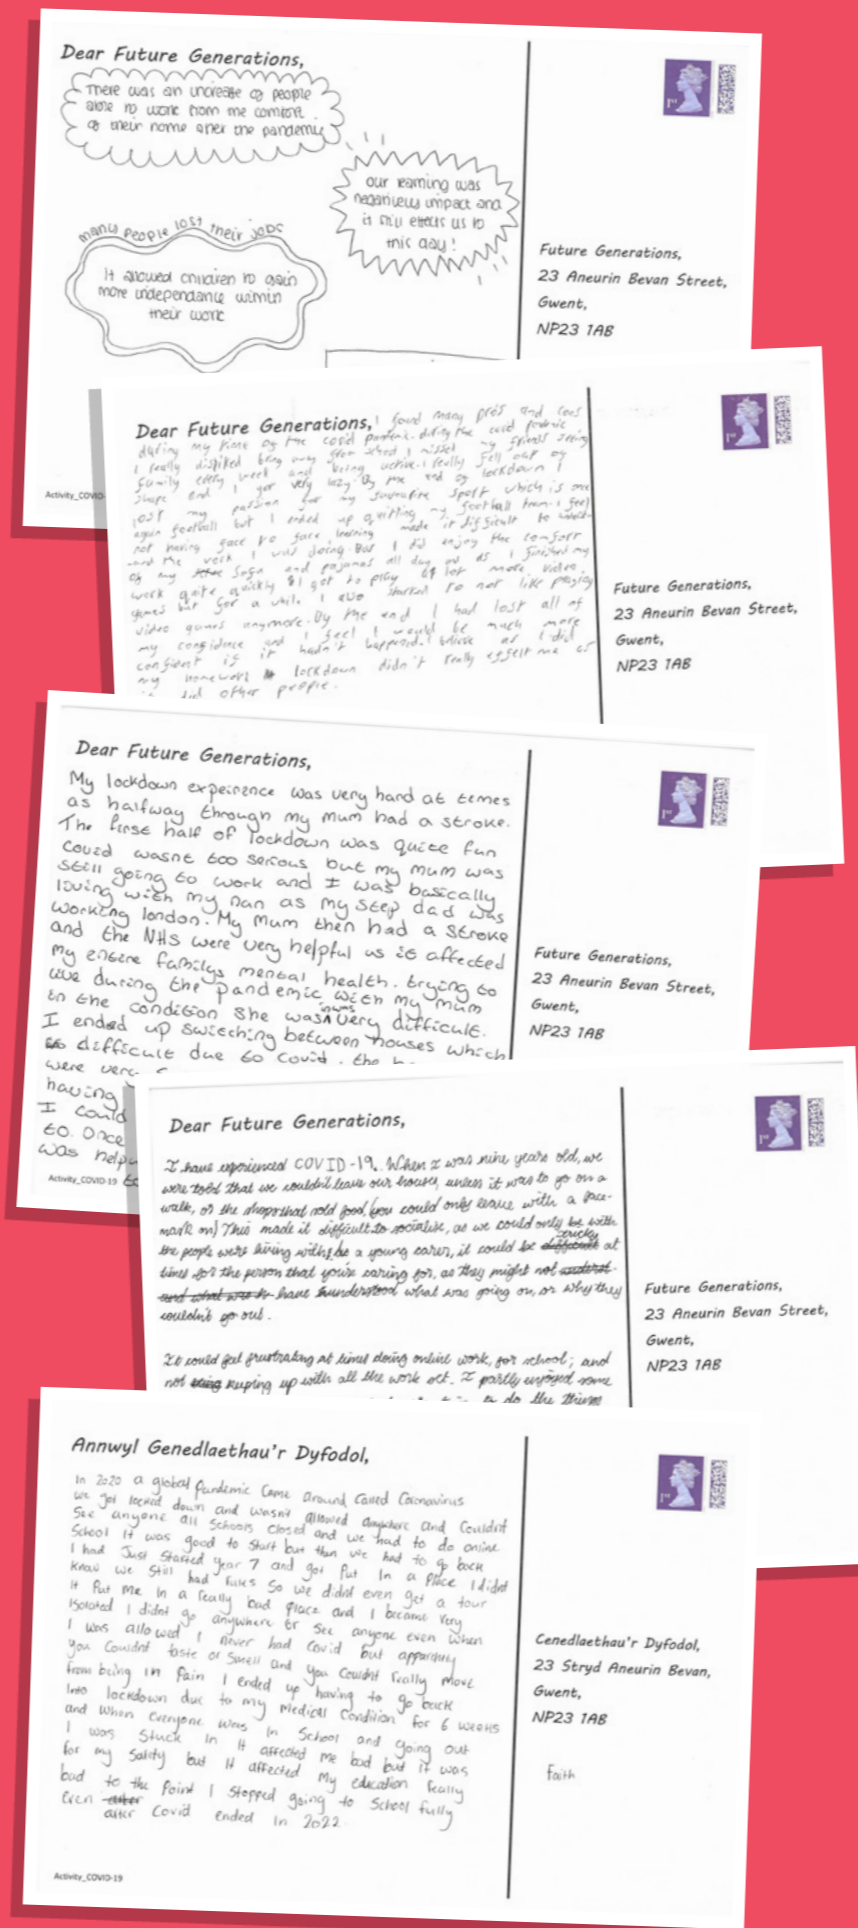 Dear Future Generations,
There was an increase of people
able to work from the comfort
of their home after the pandemic
our learning was
negatively impact and
it still effects us to
this day!
many people lost their jobs
It allowed children to gain
more independance within
their work
1st
Future Generations,
23 Aneurin Bevan Street,
Gwent,
NP23 1AB
Activity_COVID-
Dear Future Generations, I found many pros and cons
during my time of the covid pandemic. during the covid pandemic
I really disliked being away from school I missed my friends seeing
family every week and being active. I really fell out of
shape and I got very lazy. By the end of lockdown I
lost my passion for my favourite sport which is
again football but I ended up quitting my football team. I feel
not having face to face learning made it difficult to
and the work I was doing. But I did enjoy the comfort
of my sofa and pajamas all day and as I finished my
work quite quickly I got to play a lot more video
games but for a while I also started to not like playing
video games anymore. By the end I had lost all of
my confidence and I feel I would be much more
confident if it hadn't happened. I believe as I did
my homework lockdown didn't really effect me as
it did other people.
1st
Future Generations,
23 Aneurin Bevan Street,
Gwent,
NP23 1AB
Dear Future Generations,
My lockdown expeirence was very hard at times
as halfway through my mum had a stroke.
The first half of lockdown was quite fun
Covid wasnt too serious but my mum was
still going to work and I was basically
living with my nan as my step dad was
working london. My mum then had a stroke
and the NHS were very helpful as it affected
my entire familys mental health. trying to
live during the pandemic with my mum
in the condition she was in was very difficult.
I ended up switching between houses which
is difficult due to covid. the
were very
having
I could
to. Once
was help
Activity_COVID-19
1st
Future Generations,
23 Aneurin Bevan Street,
Gwent,
NP23 1AB
Dear Future Generations,
I have experienced COVID-19. When I was nine years old, we
were told that we couldn't leave our houses, unless it was to go on a
walk, or the shops that sold food (you could only leave with a face-
mask on) This made it difficult to socialise, as we could only be with
the people we're living with. As a young carer, it could be difficult tricky at
times for the person that you're caring for, as they might not underst-
and what was have understood what was going on, or why they
couldn't go out.
It could feel frustrating at times doing online work, for school; and
not being keeping up with all the work set. I partly enjoyed some
to do the things
1st
Future Generations,
23 Aneurin Bevan Street,
Gwent,
NP23 1AB
Annwyl Genedlaethau'r Dyfodol,
In 2020 a global Pandemic Came Around Called Coronavirus
we got locked down and wasnt allowed anywhere and Couldnt
See anyone all Schools closed and we had to do online
School It was good to start but then we had to go back
I had Just Started year 7 and got Put In a Place I didnt
know we Still had rules So we didnt even get a tour
It Put me In a really bad Place and I became very
Isolated I didnt go anywhere or See anyone even when
I was allowed I never had Covid but apparently
you Couldnt taste or Smell and you Couldnt really move
from being in Pain I ended up having to go back
Into lockdown due to my Medical Condition for 6 weeks
and when everyone was In School and going out
I was Stuck In It affected me bad but it was
for my Safety but It affected My education really
bad to the Point I Stopped going to School fully
even after after Covid ended In 2022
1st
Cenedlaethau'r Dyfodol,
23 Stryd Aneurin Bevan,
Gwent,
NP23 1AB
Faith
Activity_COVID-19